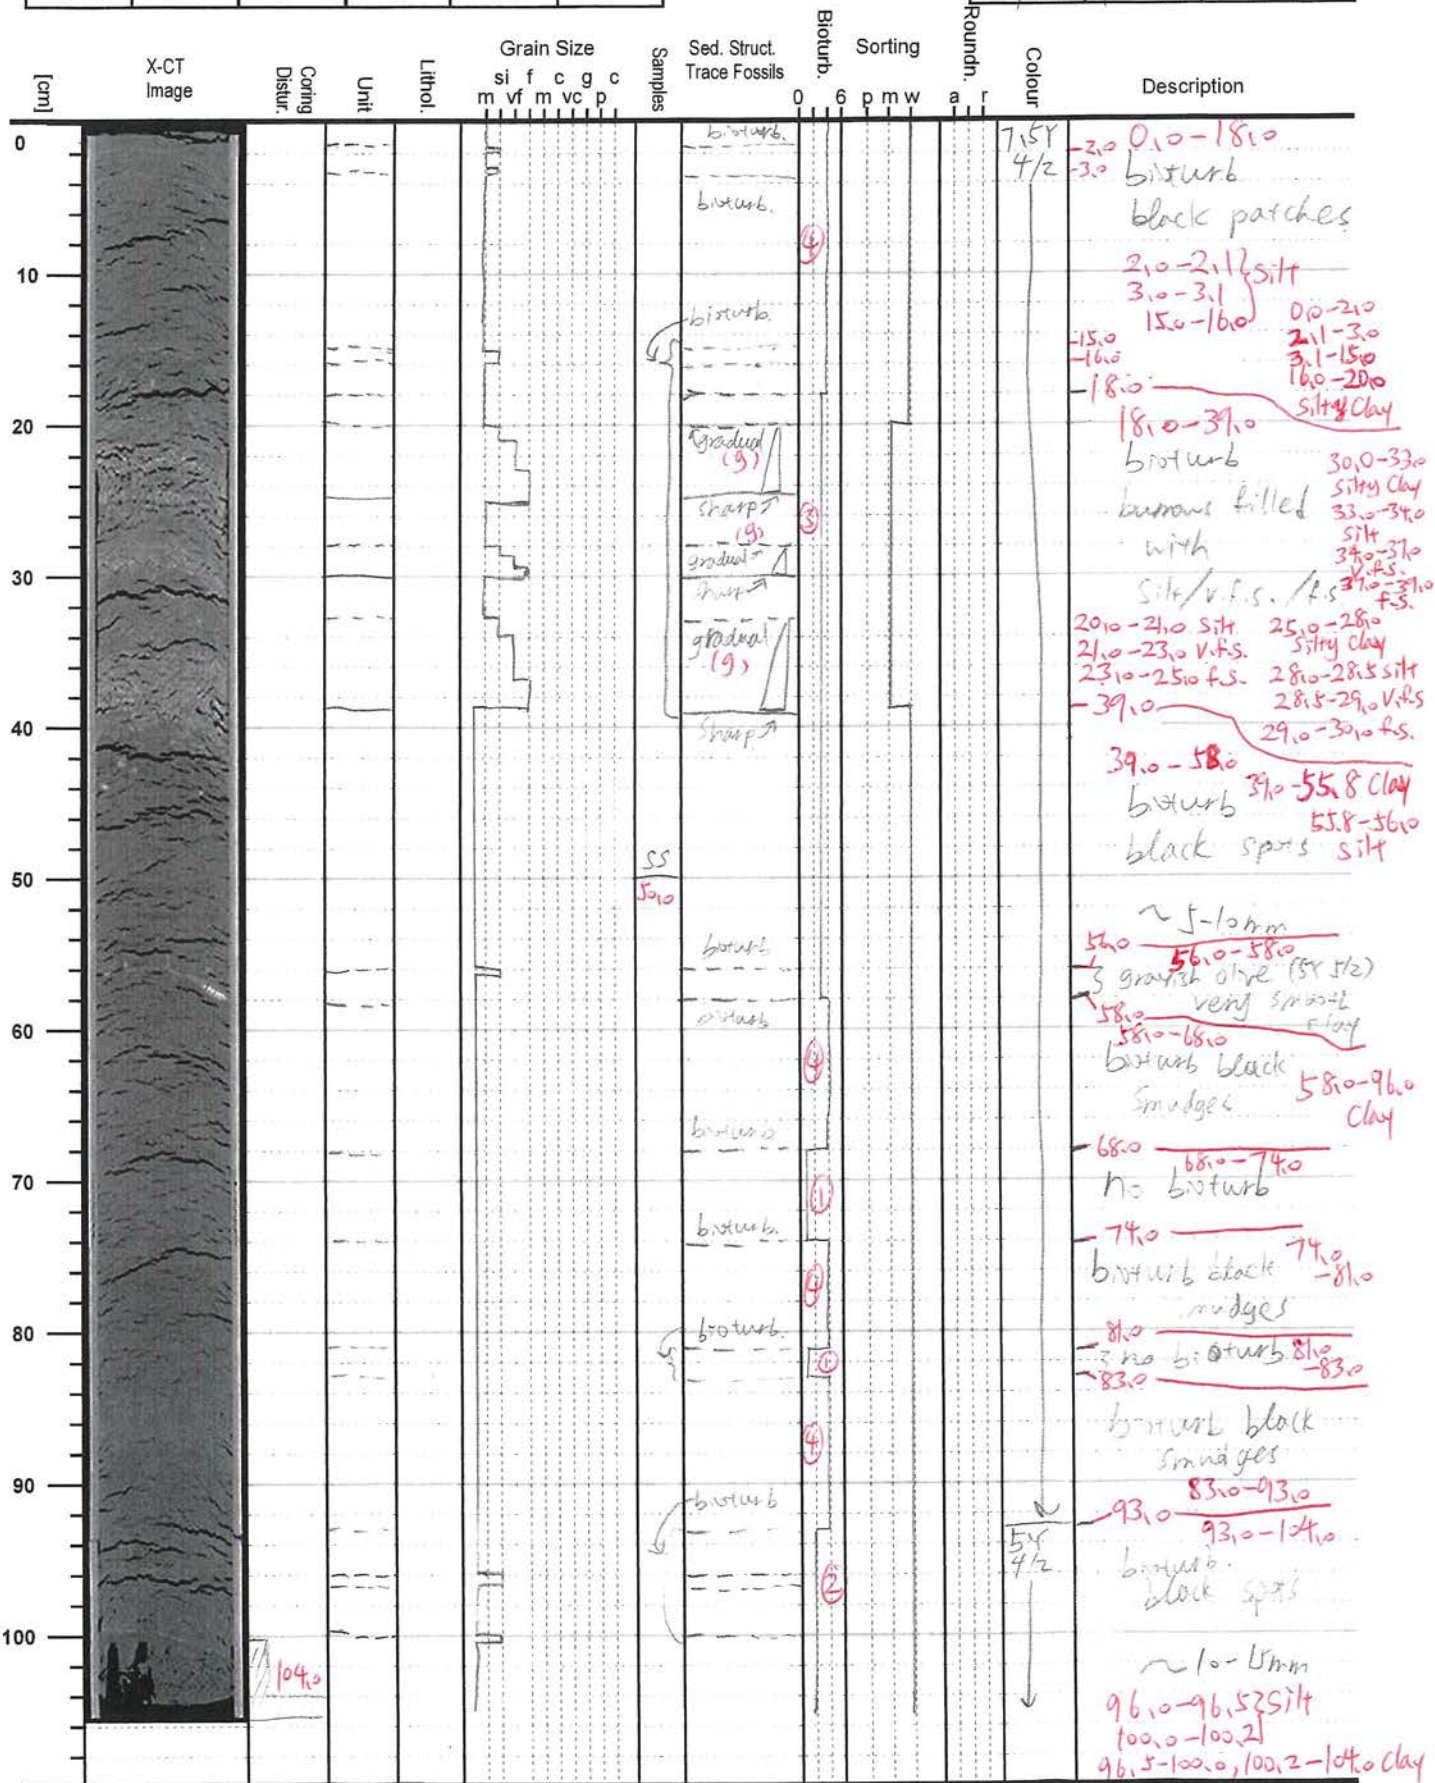 [cm]
X-CT
Image
Coring
Distur.
Unit
Lithol.
Grain Size
si f c g c
m vf m vc p
Samples
Sed. Struct.
Trace Fossils
Bioturb.
0 6
Sorting
p m w
Roundn.
a r
Colour
Description
0
10
20
30
40
50
60
70
80
90
100
104.0
SS
50.0
bioturb.
bioturb.
bioturb.
gradual
(g)
sharp
(g)
gradual
sharp
gradual
(g)
sharp
bioturb
bioturb
bioturb
bioturb.
bioturb.
bioturb
4
3
4
1
4
1
4
2
7.5Y
4/2
5Y
4/2
-2.0 0.0-18.0
-3.0 bioturb
black patches
2.0-2.1 } silt
3.0-3.1
15.0-16.0
0.0-2.0
2.1-3.0
3.1-15.0
16.0-20.0
silty Clay
-15.0
-16.0
18.0
18.0-39.0
bioturb
burrows filled
with
silt/v.f.s./f.s
30.0-33.0
silty Clay
33.0-34.0
silt
34.0-37.0
v.f.s.
37.0-39.0
f.s.
20.0-21.0 silt
21.0-23.0 v.f.s.
23.0-25.0 f.s.
25.0-28.0
silty Clay
28.0-28.5 silt
28.5-29.0 v.f.s
29.0-30.0 f.s.
-39.0
39.0-58.0
bioturb
black spots
39.0-55.8 Clay
55.8-56.0
silt
~5-10mm
56.0
56.0-58.0
grayish olive (5Y 5/2)
very smooth
clay
58.0
58.0-68.0
bioturb black
smudges
58.0-96.0
Clay
68.0
68.0-74.0
no bioturb
74.0
bioturb black
smudges
74.0
-81.0
81.0
no bioturb 81.0
-83.0
83.0
bioturb black
smudges
83.0-93.0
93.0
93.0-104.0
bioturb.
black spots
~10-15mm
96.0-96.5 } silt
100.0-100.2
96.5-100.0, 100.2-104.0 clay